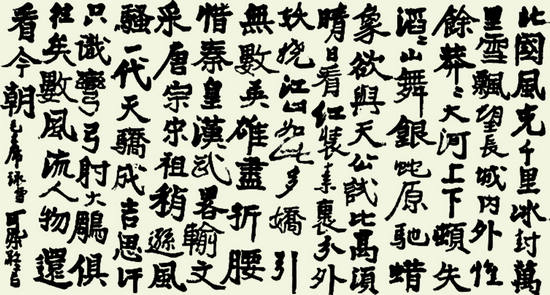 北國風光千里冰封萬
里雪飄望長城内外惟
餘莽〻大河上下頓失
滔〻山舞銀蛇原馳蜡
象欲與天公試比高須
晴日看紅裝素裹分外
妖嬈江山如此多嬌引
無數英雄盡折腰
惜秦皇漢武畧輸文
采唐宗宋祖稍遜風
騷一代天驕成吉思汗
只識彎弓射大鵰俱
往矣數風流人物還
看今朝毛主席詠雪